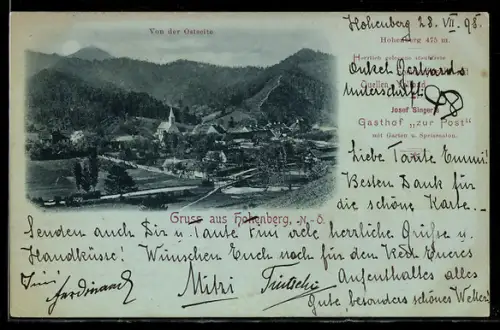 Hohenberg 28. VII. 98.
Von der Ostseite
Hohenberg 475 m.
Onkel Gerhards
Unterschrift!
Quellen
Josef Singer's
Gasthof „zur Post"
mit Garten u. Speisesalon.
Liebe Tante Emmi!
Besten Dank für
die schöne Karte.
Gruss aus Hohenberg, N.-Ö.
Senden auch Dir u. Tante viele herrliche Grüße u.
Handküsse! Wünschen Euch noch für den Rest Eures
Aufenthaltes alles
Gute, besonders schönes Wetter!
Ferdinand
Mitzi